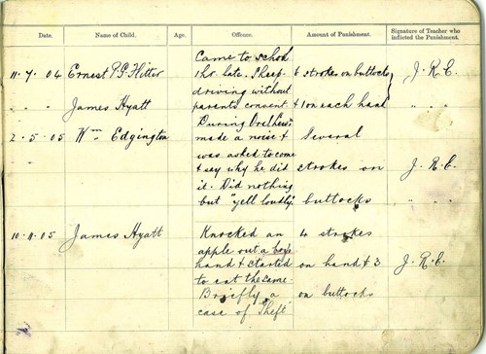 Date. Name of Child. Age. Offence. Amount of Punishment. Signature of Teacher who
inflicted the Punishment.
Came to school
11.7.04 Ernest P. G. Hitter 1 hr. late. Sheep 6 strokes on buttocks J. R. C.
driving without
" " James Hyatt parents consent & 1 on each hand " " "
During
2-5-05 Wm Edgington made a noise & Several
" was asked to come
& say why he did strokes on J. R. C.
it. Did nothing
but "yell loudly" buttocks " "
10.11.05 James Hyatt Knocked an 4 strokes
apple out a boy's
hand & started on hand & 3 J. R. C.
to eat the same
Briefly a on buttocks
case of "Theft"